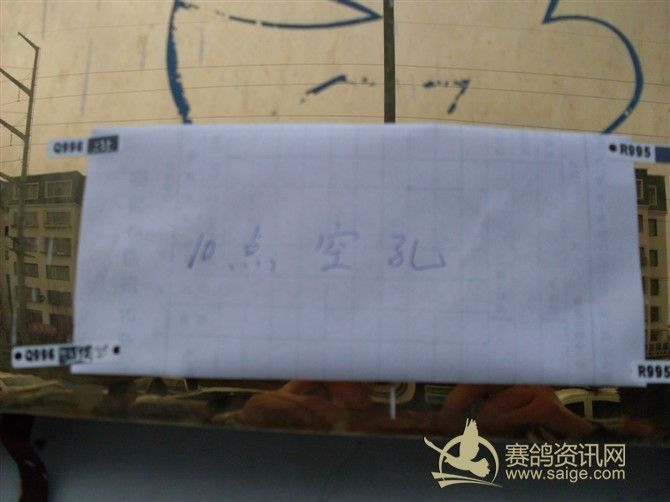 Q996
R995
10点空孔
Q996
R995
赛鸽资讯网
www.saige.com